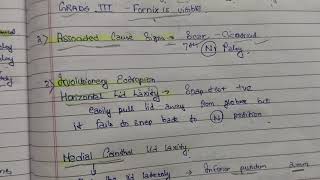 GRADE III - Fornix is visible
2) Associated Cause Signs → Scar - Cicatrical
7th (N) Palsy
3) Involutionary Ectropion
Horizontal Lid Laxity → Snapback test +ve
easily pull lid away from globe but
it fails to snap back to (N) position
Medial Canthal lid laxity
lid laterally → Inferior punctum 2mm